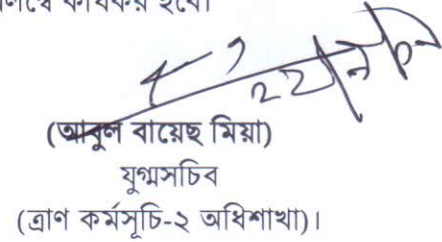 কার্যকর হবে।
(আবুল বায়েছ মিয়া)
যুগ্মসচিব
(ত্রাণ কর্মসূচি-২ অধিশাখা)।